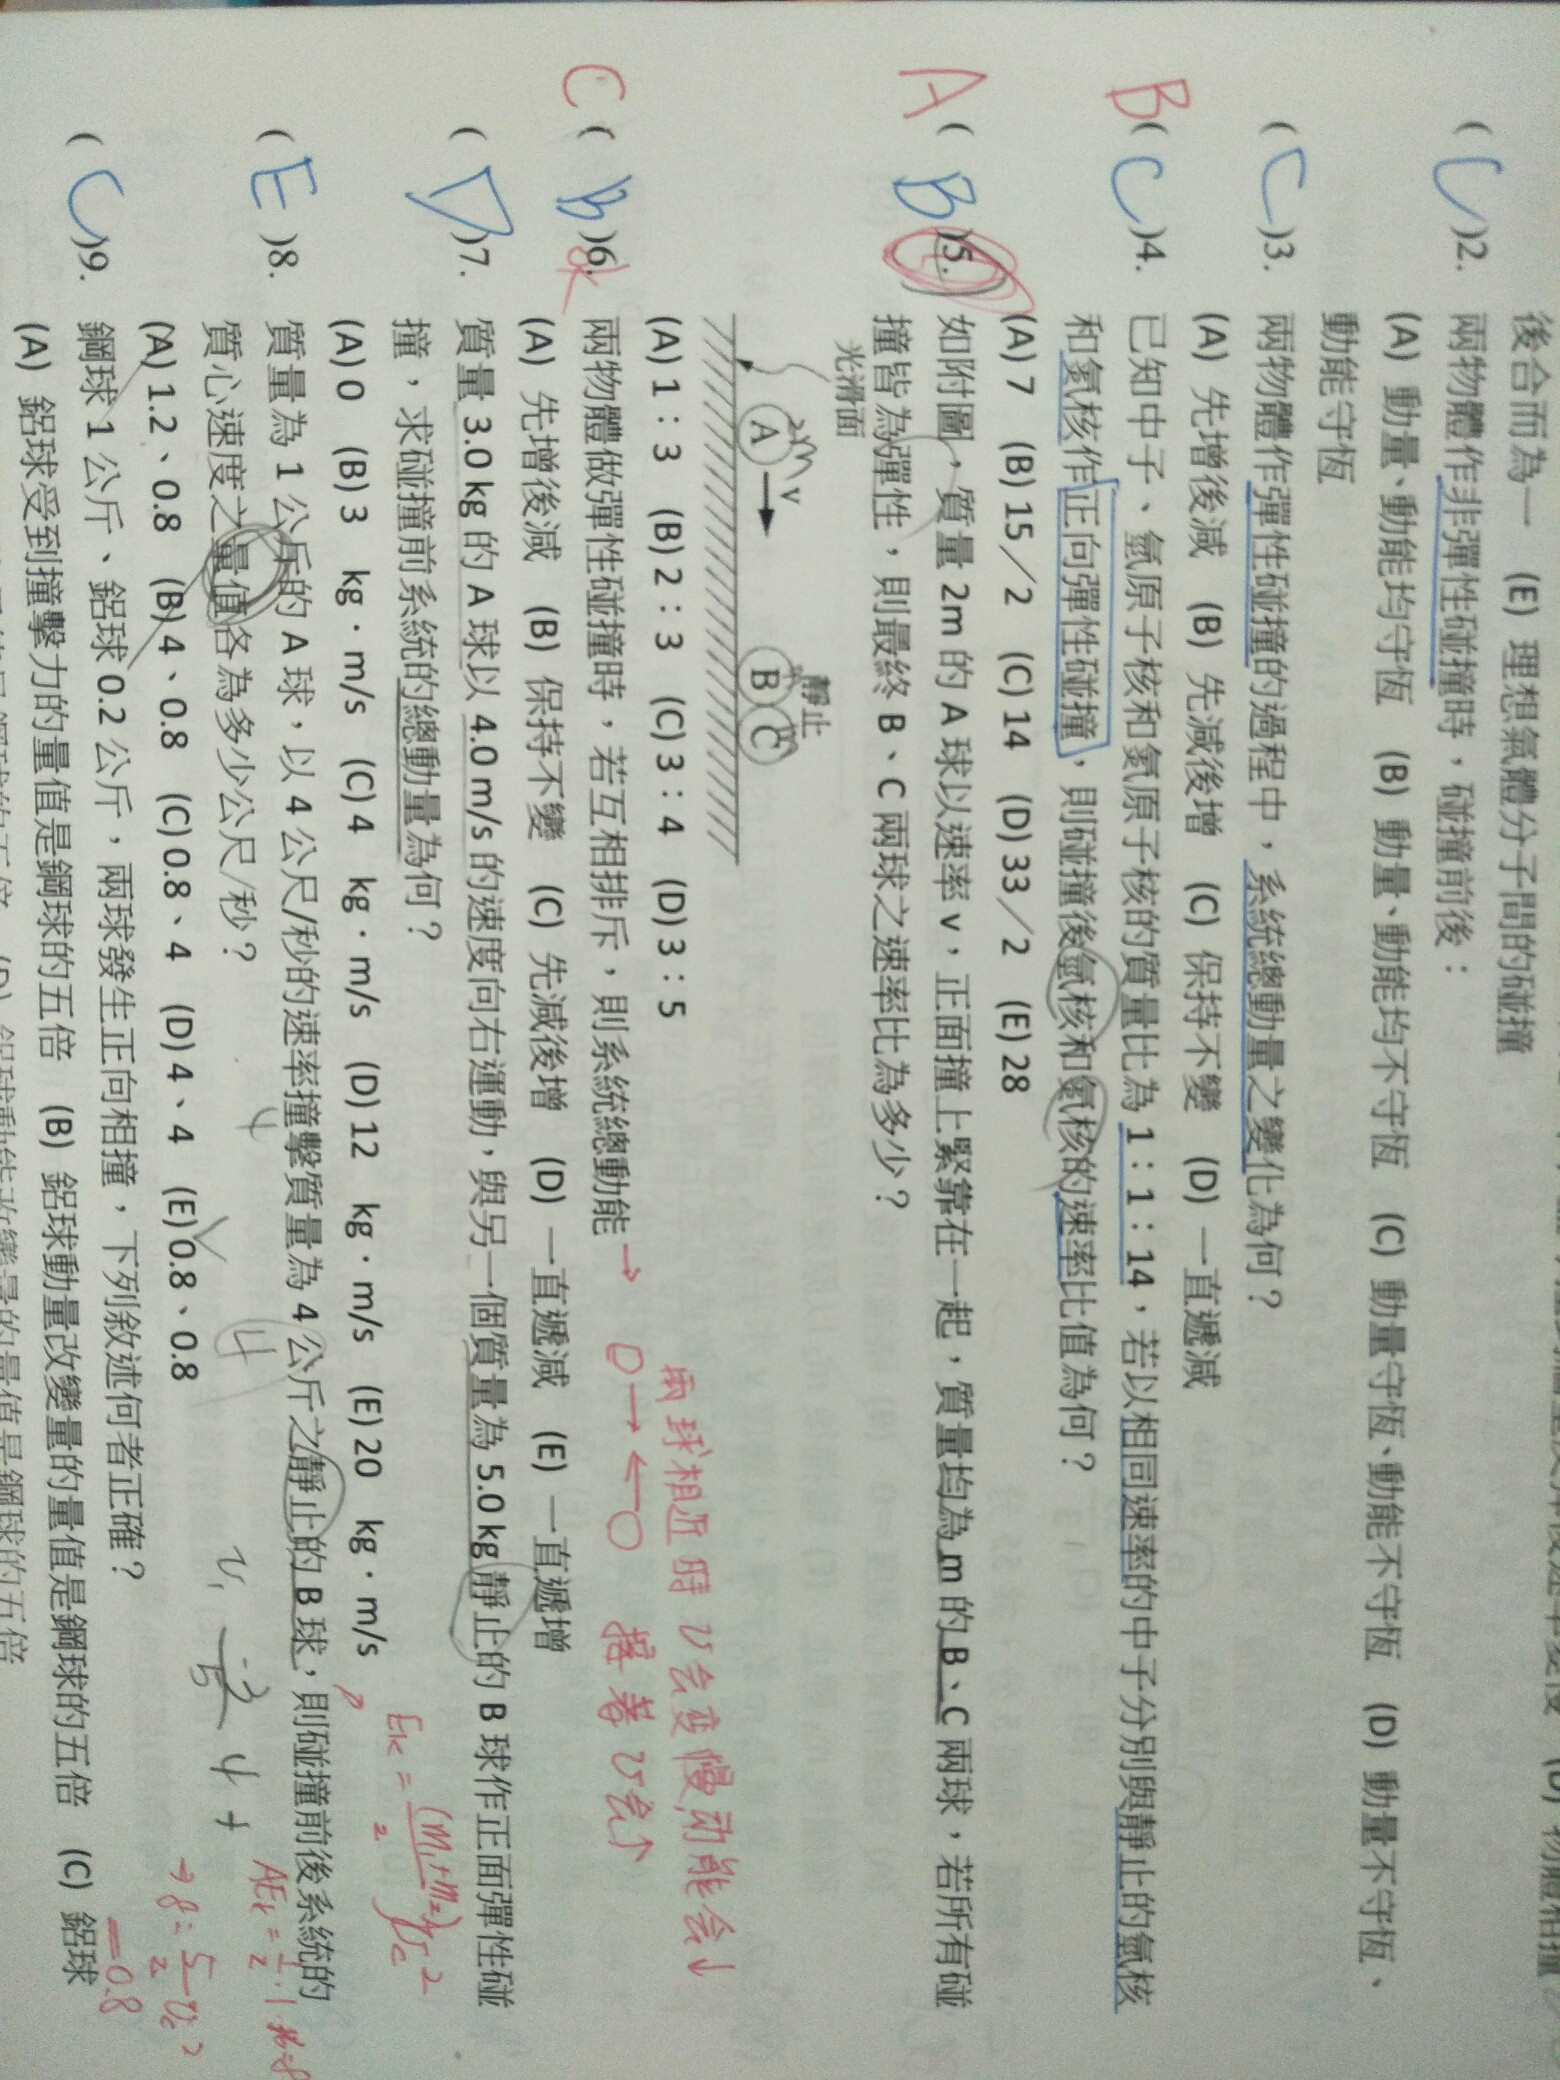 後合而為一 (E) 理想氣體分子間的碰撞
( C )2. 兩物體作非彈性碰撞時，碰撞前後：
(A) 動量、動能均守恆 (B) 動量、動能均不守恆 (C) 動量守恆、動能不守恆 (D) 動量不守恆、
動能守恆
( C )3. 兩物體作彈性碰撞的過程中，系統總動量之變化為何？
(A) 先增後減 (B) 先減後增 (C) 保持不變 (D) 一直遞減
B ( C )4. 已知中子、氫原子核和氮原子核的質量比為 1：1：14，若以相同速率的中子分別與靜止的氫核
和氮核作正向彈性碰撞，則碰撞後氫核和氮核的速率比值為何？
(A) 7 (B) 15／2 (C) 14 (D) 33／2 (E) 28
A ( B )5. 如附圖，質量 2m 的 A 球以速率 v，正面撞上緊靠在一起，質量均為 m 的 B、C 兩球，若所有碰
撞皆為彈性，則最終 B、C 兩球之速率比為多少？
光滑面
靜止
2m
v
A
B C
(A) 1：3 (B) 2：3 (C) 3：4 (D) 3：5
兩球相近時 v 会变慢,动能会↓
C ( B )6. 兩物體做彈性碰撞時，若互相排斥，則系統總動能 → O→ ←O 接著 v 会↑
(A) 先增後減 (B) 保持不變 (C) 先減後增 (D) 一直遞減 (E) 一直遞增
( D )7. 質量 3.0 kg 的 A 球以 4.0 m/s 的速度向右運動，與另一個質量為 5.0 kg 靜止的 B 球作正面彈性碰
撞，求碰撞前系統的總動量為何？
(A) 0 (B) 3 kg．m/s (C) 4 kg．m/s (D) 12 kg．m/s (E) 20 kg．m/s
( E )8. 質量為 1 公斤的 A 球，以 4 公尺/秒的速率撞擊質量為 4 公斤之靜止的 B 球，則碰撞前後系統的
質心速度之量值各為多少公尺/秒？
(A) 1.2、0.8 (B) 4、0.8 (C) 0.8、4 (D) 4、4 (E) 0.8、0.8
( C )9. 鋼球 1 公斤、鋁球 0.2 公斤，兩球發生正向相撞，下列敘述何者正確？
(A) 鋁球受到撞擊力的量值是鋼球的五倍 (B) 鋁球動量改變量的量值是鋼球的五倍 (C) 鋁球